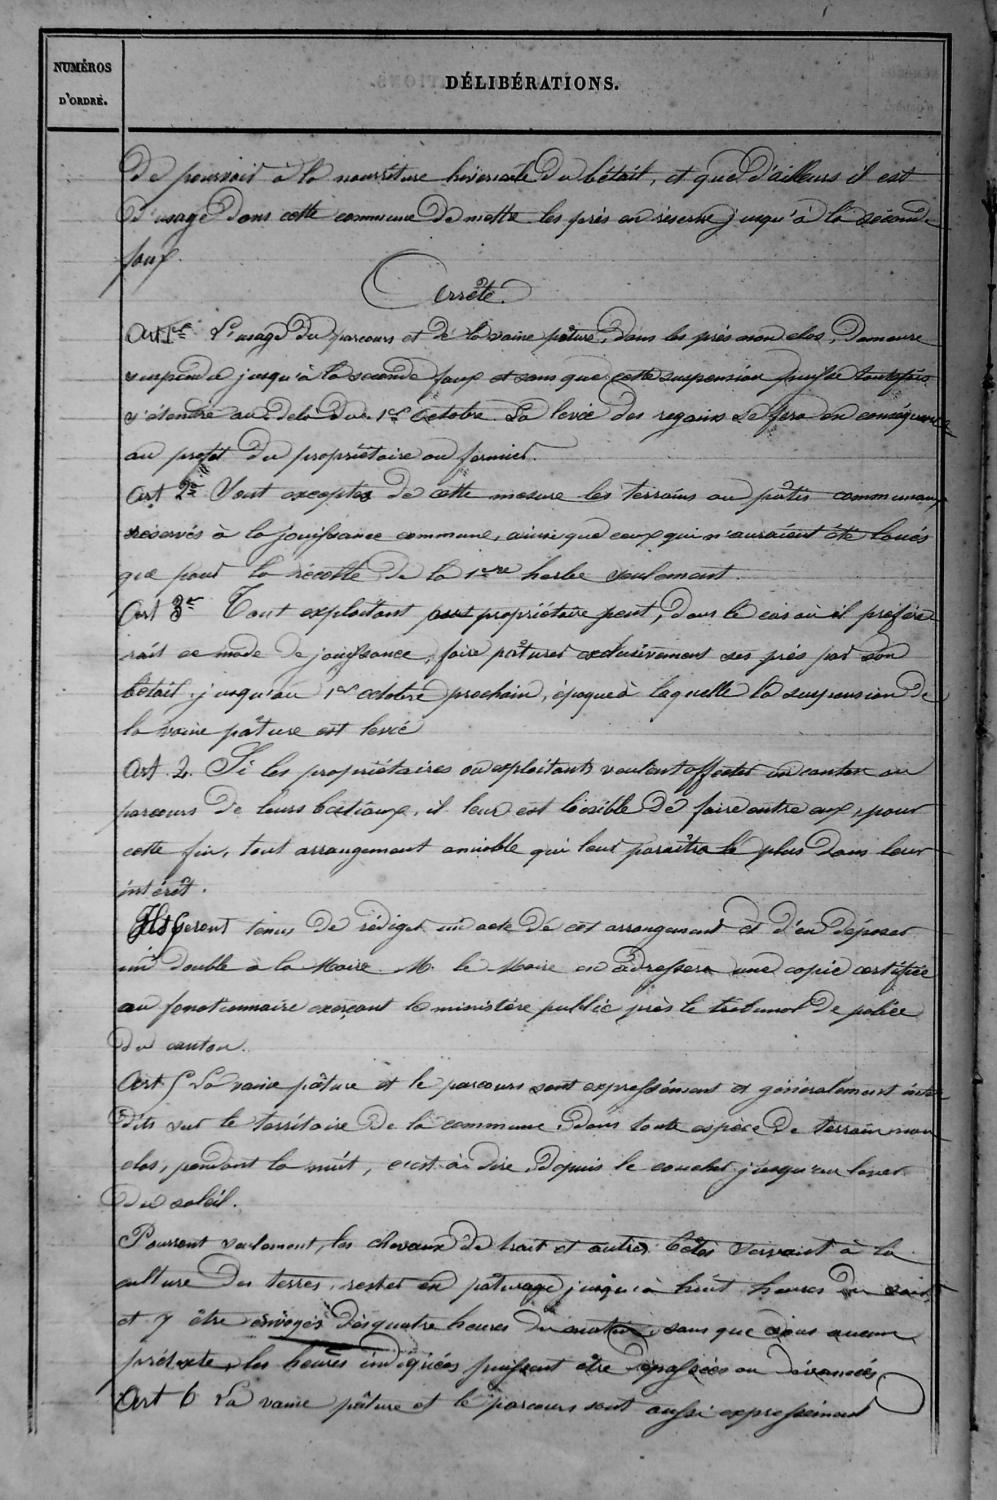 NUMÉROS
D'ORDRE.
DÉLIBÉRATIONS.
de pourvoir à la nourriture hivernale du bétail, et que d'ailleurs il est
d'usage dans cette commune de mettre les prés en réserve jusqu'à la seconde
faux.
Arrête.
Art 1er L'usage du parcours et de la vaine pâture, dans les prés non clos, demeure
suspendu jusqu'à la seconde faux et sans que cette suspension puisse toutefois
s'étendre au delà du 1er Octobre. La levée des regains se fera en conséquence
au profit du propriétaire ou fermier.
Art 2e Sont exceptés de cette mesure les terrains ou pâtis communaux
réservés à la jouissance commune, ainsi que ceux qui n'auraient été loués
que pour la récolte de la 1ère herbe seulement.
Art 3e Tout exploitant propriétaire peut, dans le cas où il préfère
rait ce mode de jouissance, faire pâturer exclusivement ses prés par son
bétail, jusqu'au 1er octobre prochain, époque à laquelle la suspension de
la vaine pâture est levée
Art. 4. Si les propriétaires ou exploitants veulent affecter un canton au
parcours de leurs bestiaux, il leur est loisible de faire entre eux, pour
cette fin, tout arrangement amiable qui leur paraîtra le plus dans leur
intérêt.
Ils seront tenus de rédiger un acte de cet arrangement et d'en déposer
un double à la Mairie. M. le Maire en adressera une copie certifiée
au fonctionnaire exerçant le ministère public près le tribunal de police
du canton.
Art 5 La vaine pâture et le parcours sont expressément et généralement inter
dits sur le territoire de la commune, dans toute espèce de terrain non
clos, pendant la nuit, c'est à dire, depuis le coucher jusqu'au lever
du soleil.
Pourront seulement, les chevaux de trait et autres bêtes servant à la
culture des terres, rester en pâturage jusqu'à huit heures du soir,
et y être envoyés dès quatre heures du matin, sans que sous aucun
prétexte, les heures indiquées puissent être dépassées ou devancées
Art 6 La vaine pâture et le parcours sont aussi expressément